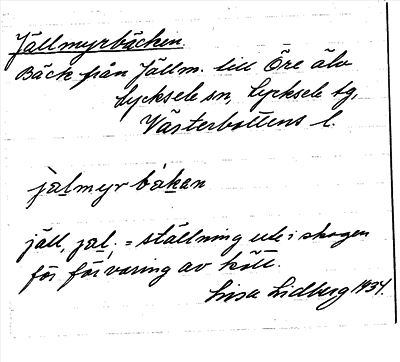 Jällmyrbäcken.
Bäck från Jällm. till Öre älv
Lycksele sn, Lycksele tg,
Västerbottens l.
jalmyr bäkan
jäll, jal. = ställning ute i skogen
för förvaring av kött.
Lisa Lidberg 1934.